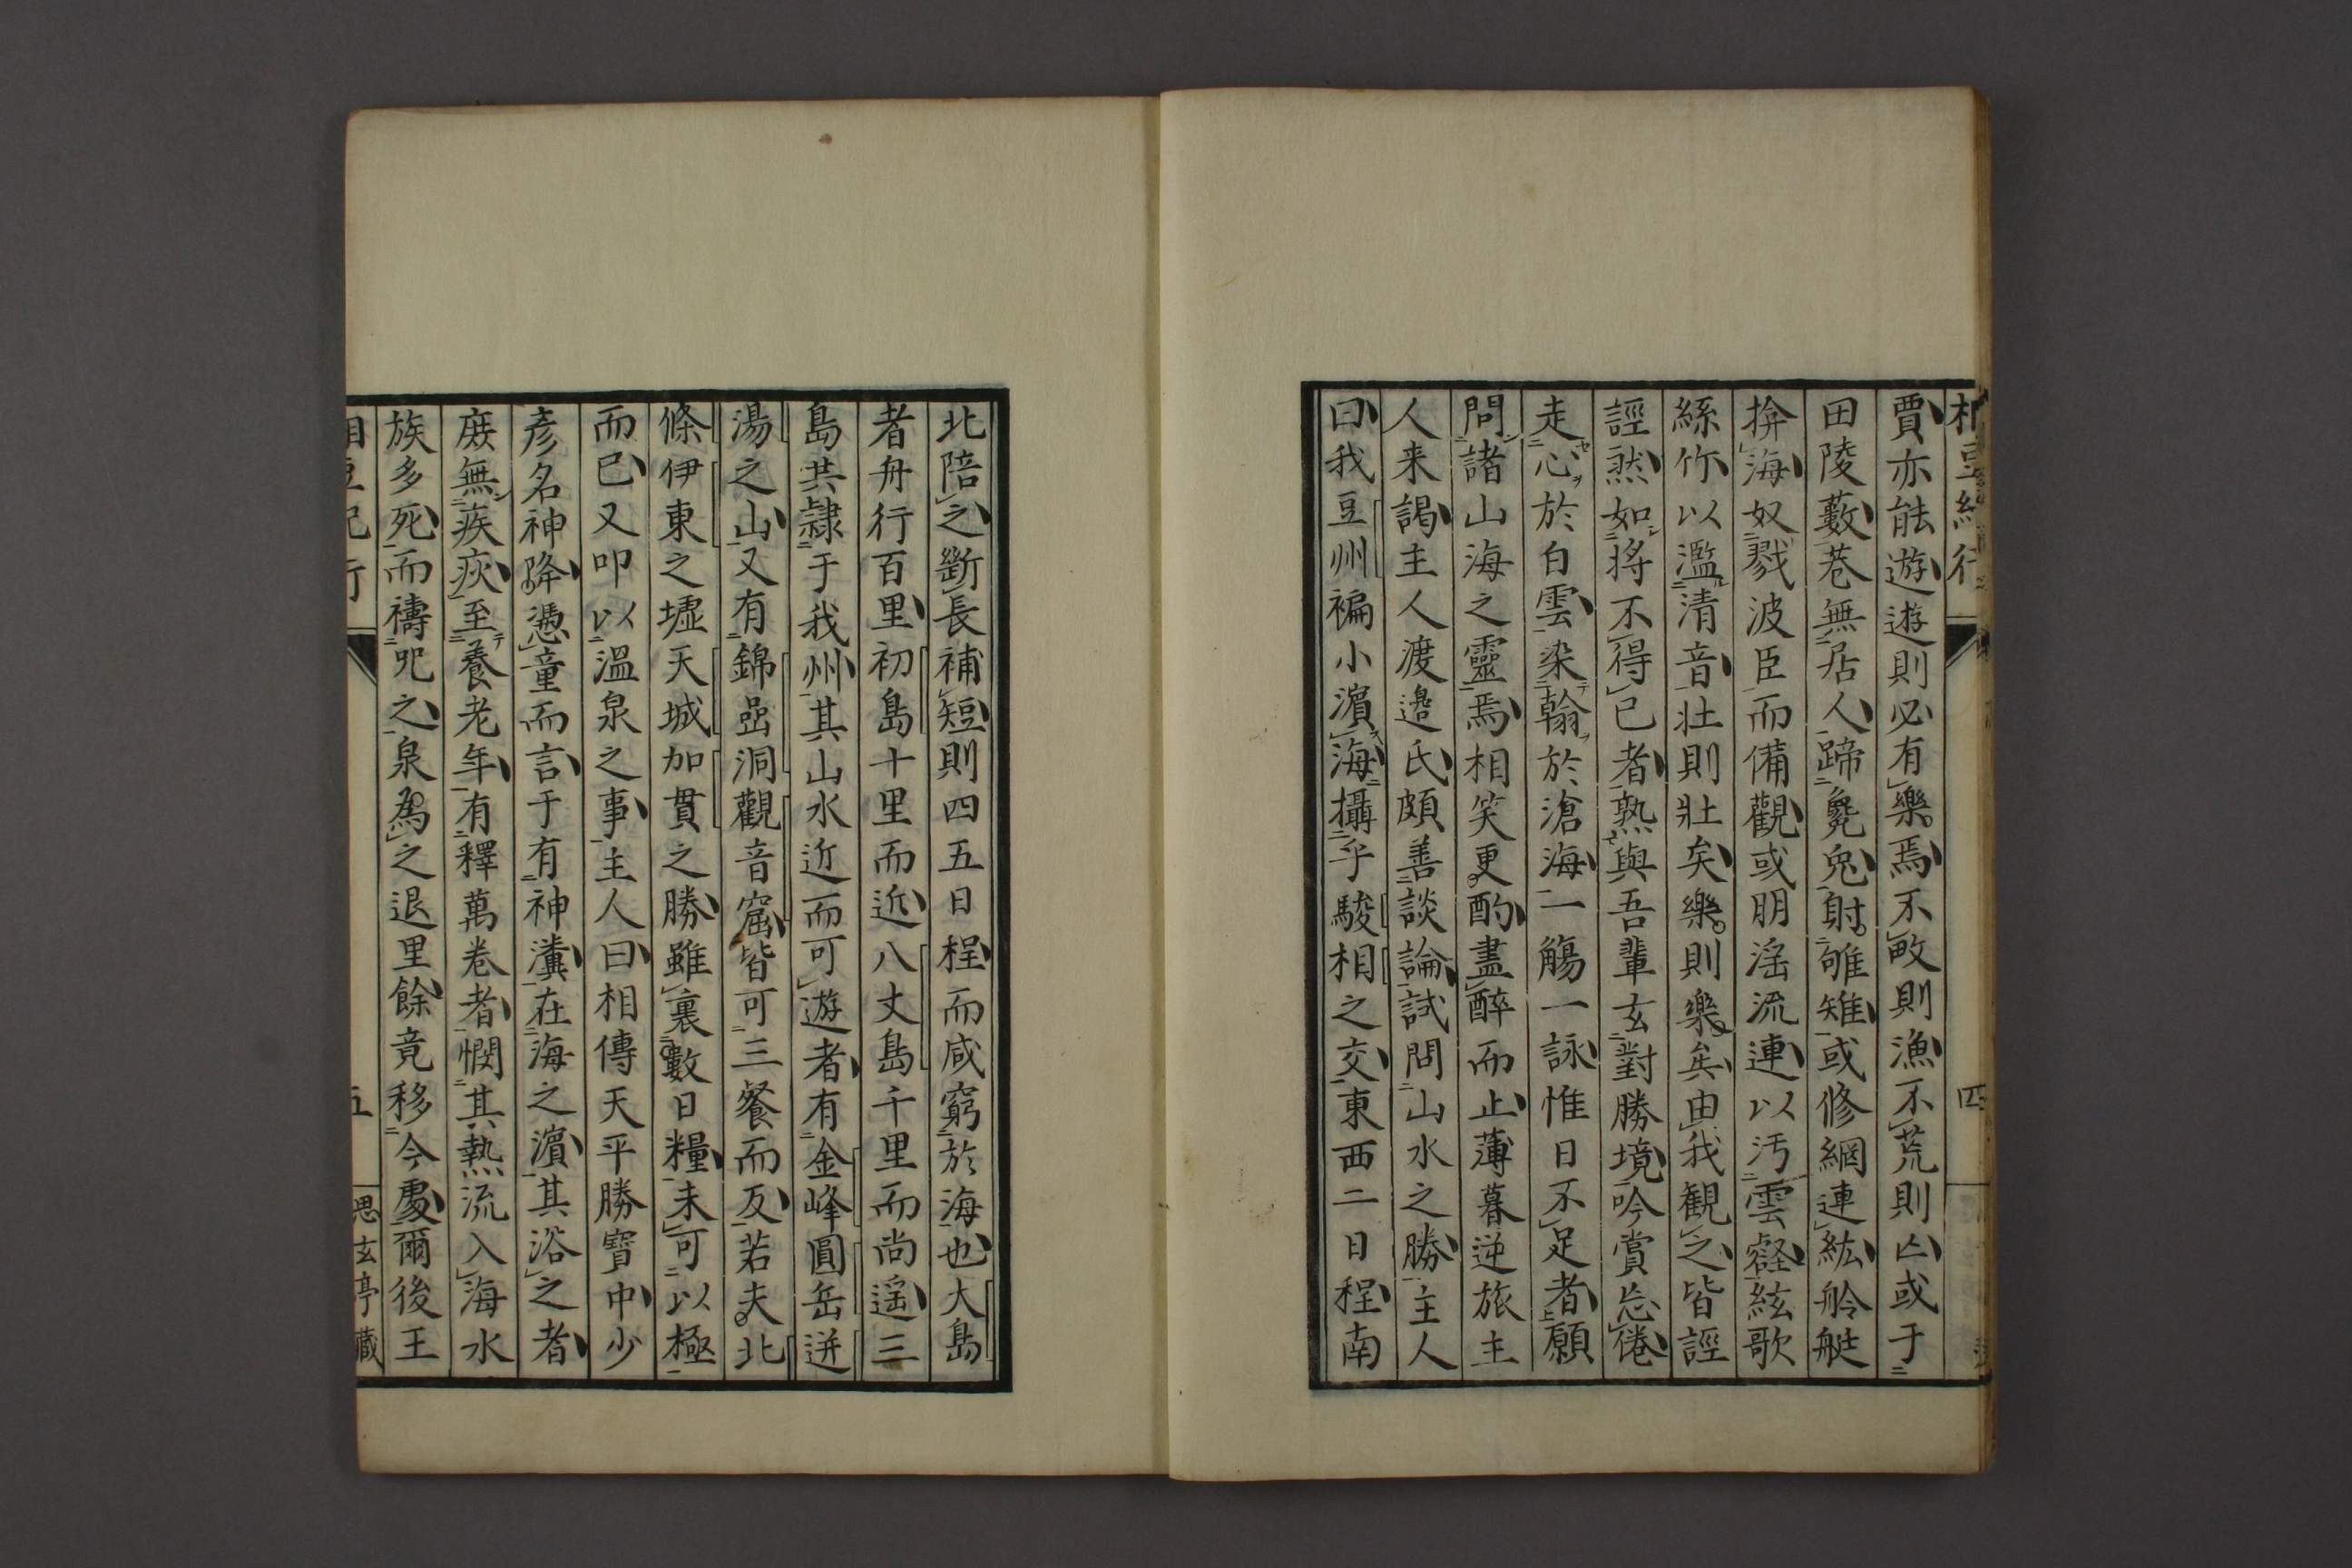 相豆紀行
四
賈亦能遊遊則必有樂焉不畋則漁不荒則亾或于
田陵藪巷無居人蹄麑兔射雊雉或修網連紘舲艇
揜海奴戮波臣而備觀或朋淫流連以汚雲壑絃歌
絲竹以濫清音壯則壯矣樂則樂矣由我觀之皆誙
誙然如將不得已者孰與吾輩玄對勝境吟賞忘倦
走心於白雲染翰於滄海一觴一詠惟日不足者願
問諸山海之靈焉相笑更酌盡醉而止薄暮逆旅主
人来謁主人渡邉氏頗善談論試問山水之勝主人
曰我豆州褊小濱海攝乎駿相之交東西二日程南
北陪之斷長補短則四五日程而咸窮於海也大島
者舟行百里初島十里而近八丈島千里而尚遥三
島共隷于我州其山水近而可遊者有金峰圓岳迸
湯之山又有錦嵒洞觀音窟皆可三餐而反若夫北
條伊東之墟天城加貫之勝雖裹數日糧未可以極
而已又叩以溫泉之事主人曰相傳天平勝寶中少
彦名神降憑童而言于有神瀵在海之濱其浴之者
庶無疾疢至養老年有釋萬卷者憫其熱流入海水
族多死而禱咒之泉爲之退里餘竟移今處爾後王
相豆紀行
五
思玄亭藏